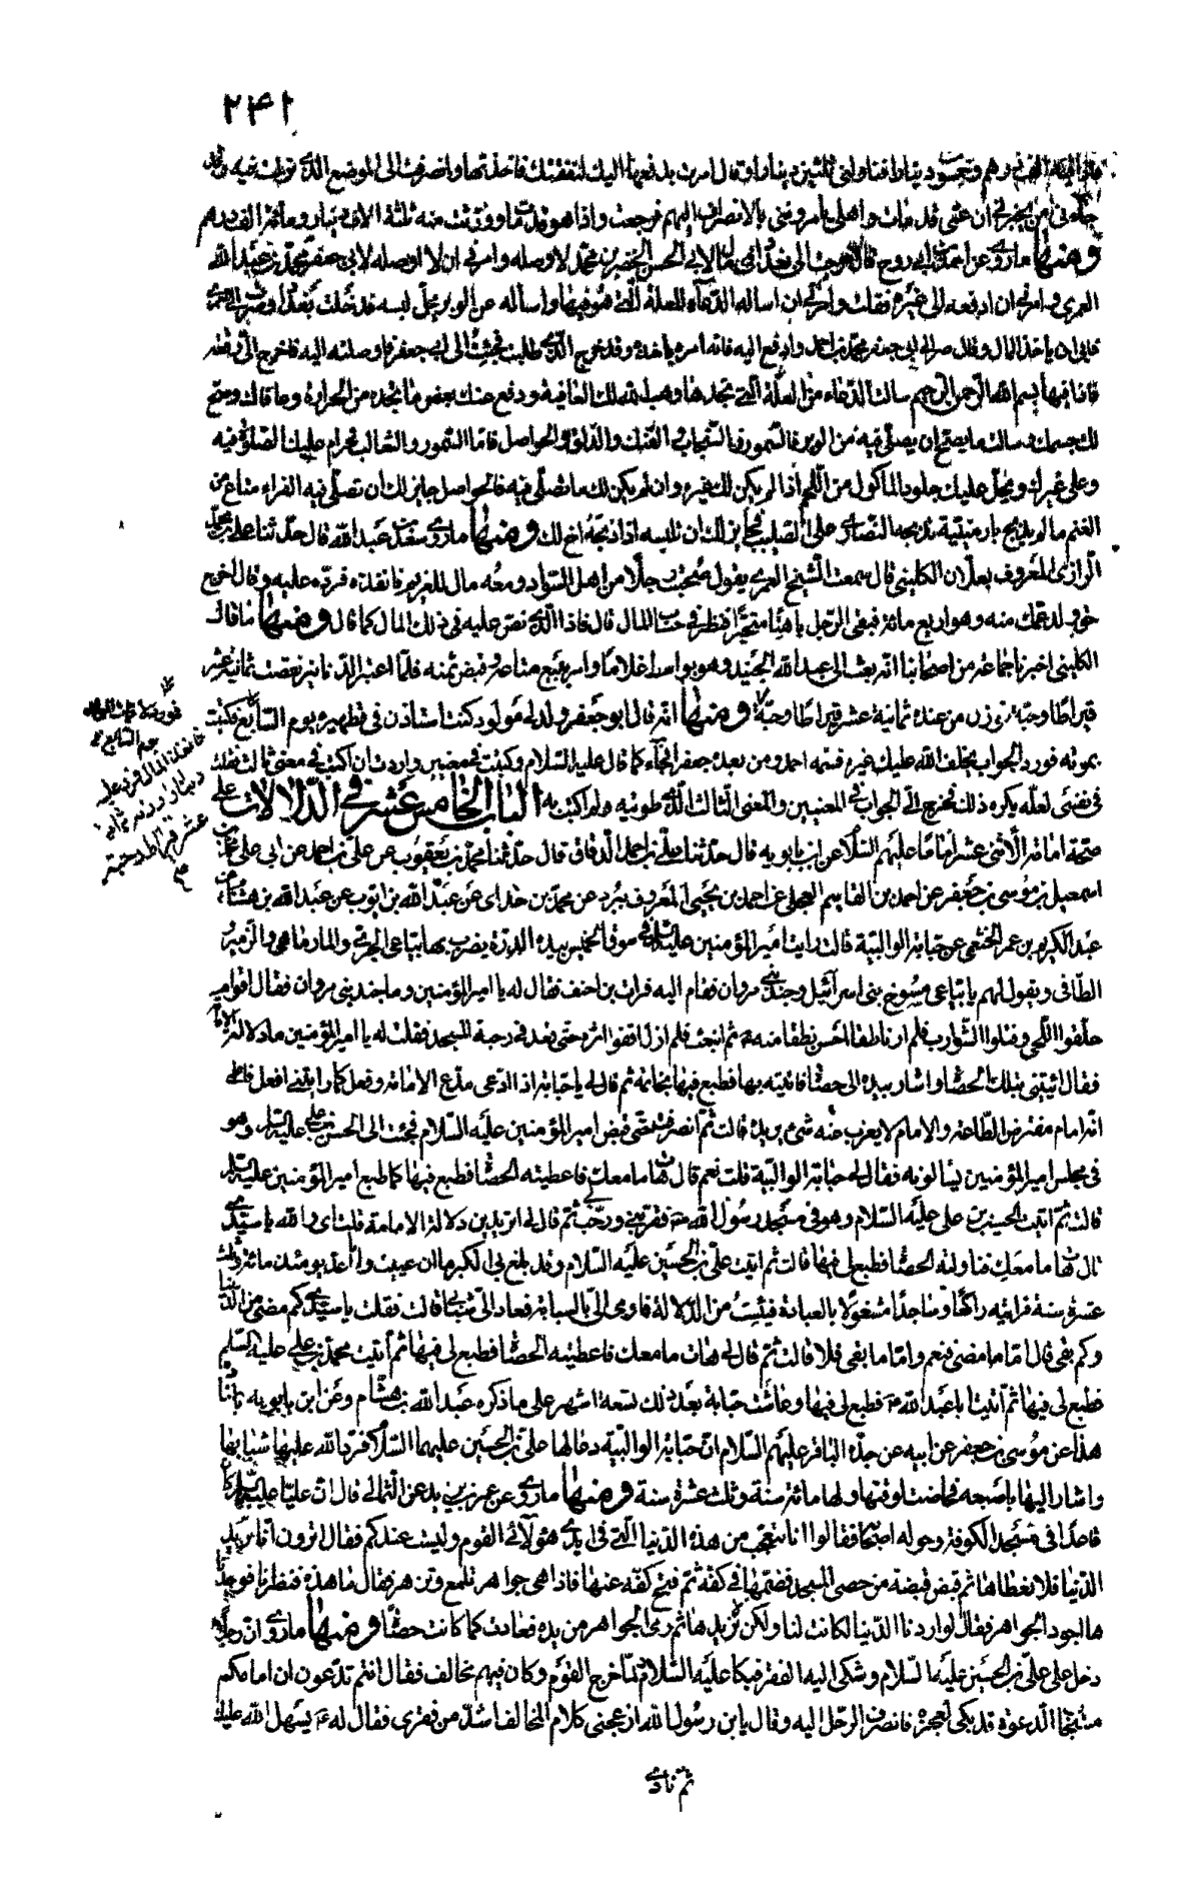 ٢٤١
وخمسون دينارا فناولنى ثلثين دينارا وقال امرت بدفعها اليك لنفقتك فاخذتها وانصرفت الى الموضع الذى نزلت فيه وقد
جاءنى من يخبرنى ان عمتى قد ماتت واهلى يامروننى بالانصراف اليهم فرجعت واذا هو قد ماتت وورثت منه ثلثة الاف دينار ومائة الف درهم
ومنها ما روى عن احمد بن ابى روح قال خرجت الى بغداد فى مال لابى الحسن الخضر بن محمد لاوصله وامرنى ان لا اوصله لابى جعفر محمد بن عبد الله
العمرى وامرنى ان ادفعه الى غيره فقلت وامرنى ان اساله الدعاء للعلة التى هو فيها واساله عن الوبر يحل لبسه فدخلت بغداد وصرت الى العمرى
فابى ان ياخذ المال وقال صر الى ابى جعفر محمد بن احمد وادفع اليه فانه امره باخذه وقد خرج الذى طلبت فجئت الى ابى جعفر فاوصلته اليه فاخرج الى رقعة
فاذا فيها بسم الله الرحمن الرحيم سالت الدعاء من العلة التى تجدها وهب الله لك العافية ودفع عنك بعض ما تجده من الحرارة وعافاك وصح
لك جسمك وسالت ما يصح ان يصلى فيه من الوبر والسمور والسنجاب والفنك والدلق والحواصل فاما السمور والثعالب فحرام عليك الصلوة فيه
وعلى غيرك ويحل عليك جلود الماكول من اللحم اذا لم يكن لك غيره وان لم يكن لك ما تصلى فيه فالحواصل جايز لك ان تصلى فيه الفراء متاع من
الغنم ما لم يذبح بارمنيّة تذبحه النصارى على الصليب فجايز لك ان تلبسه اذا ذبحه اخ لك ومنها ما روى سعد بن عبد الله قال حدثنا على بن محمد
الرازى المعروف بعلان الكلينى قال سمعت الشيخ العمرى يقول صحبت رجلا من اهل السواد ومعه مال للغريم فانفذه فرده عليه وقال اخرج
حق ولد عمك منه وهو اربع مائة فبقى الرجل باهتا متحيرا فنظر فى حساب المال قال فاذا الذى نص عليه فى ذلك المال كما قال ومنها ما قال
الكلينى اخبرنا جماعة من اصحابنا انه بعث الى عبد الله الجنيد وهو بواسط غلاما وامر ببيع متاعه وقبض ثمنه فلما اعتبر الدنانير نقصت ثمانية عشر
قيراطا وحبة فوزن من عنده ثمانية عشر قيراطا وحبة ومنها انه قال ابو جعفر ولد لى مولود كنت استاذن فى تطهيره يوم السابع فكتبت
بموته فورد الجواب يخلف الله عليك غيره فسمه احمد ومن بعده جعفر فجاء كما قال عليه السلام وكتبت فى معنيين واردت ان اكتب فى معنى ثالث فقلت
فى نفسى لعله يكره ذلك فخرج الى الجواب فى المعنيين والمعنى الثالث الذى طويته ولم اكتب به الباب الخامس عشر فى الدلالات على
صحة امامة الاثنى عشر اماما عليهم السلام عن ابن بابويه قال حدثنا على بن احمد الدقاق قال حدثنا محمد بن يعقوب عن على بن احمد عن ابى على محمد بن
اسمعيل بن موسى بن جعفر عن احمد بن القاسم العجلى عن احمد بن يحيى المعروف ببرد عن محمد بن خداى عن عبد الله بن ايوب عن عبد الله بن هشام عن
عبد الكريم بن عمر الخثعمى عن حبابة الوالبية قالت رايت امير المؤمنين عليه السلام فى سوق الخميس بيده الدرة يضرب بها بياعى الجرى والمارماهى والزمير
الطافى ويقول لهم يا بياعى مسوخ بنى اسرائيل وجند بنى مروان فقام اليه فرات بن احنف فقال له يا امير المؤمنين وما جند بنى مروان فقال اقوام
حلقوا اللحى وفتلوا الشوارب فلم ار ناطقا احسن نطقا منه ثم اتبعته فلم ازل اقفو اثره حتى قعد فى رحبة المسجد فقلت له يا امير المؤمنين ما دلالة الامامة
فقال ائتينى بتلك الحصاة واشار بيده الى حصاة فاتيته بها فطبع فيها بخاتمه ثم قال لى يا حبابة اذا ادعى مدع الامامة وفعل كما رايتنى افعل فاعلمى
انه امام مفترض الطاعة والامام لا يعزب عنه شئ يريده قالت ثم انصرفت حتى قبض امير المؤمنين عليه السلام فجئت الى الحسن بن على عليه السلام وهو
فى مجلس امير المؤمنين يسالونه فقال لى حبابة الوالبية قلت نعم قال هات ما معك فاعطيته الحصاة فطبع فيها كما طبع امير المؤمنين عليه السلام
قالت ثم اتيت الحسين بن على عليه السلام وهو فى مسجد رسول الله ص فقربنى ورحب ثم قال لى اتريدين دلالة الامامة قلت اى والله يا سيدى
قال هات ما معك فناولته الحصاة فطبع لى فيها قالت ثم اتيت على بن الحسين عليه السلام وقد بلغ بى الكبر ما ان عييت وانا اعد يومئذ مائة وثلث
عشرة سنة فرايته راكعا وساجدا مشغولا بالعبادة فيئست من الدلالة فاومى الى بالسبابة فعاد الى شبابى قالت فقلت يا سيدى كم مضى من الدنيا
وكم بقى قال اما ما مضى فنعم واما ما بقى فلا قالت ثم قال لى هات ما معك فاعطيته الحصاة فطبع لى فيها ثم اتيت محمد بن على عليه السلم
فطبع لى فيها ثم اتيت ابا عبد الله ع فطبع لى فيها وعاشت حبابة بعد ذلك تسعة اشهر على ما ذكره عبد الله بن هشام وعن ابن بابويه باسناده
هذا عن موسى بن جعفر عن ابيه عن جده الباقر عليهم السلام ان حبابة الوالبية دعا لها على بن الحسين عليهما السلام فرد الله عليها شبابها
واشار اليها باصبعه فحاضت لوقتها ولها مائة سنة وثلث عشرة سنة ومنها ما روى عن عمر بن يزيد عن الثمالى قال ان عليا عليه السلم كان
قاعدا فى مسجد الكوفة وحوله اصحابه فقالوا انا نتعجب من هذه الدنيا التى فى ايدى هؤلاء القوم وليست عندكم فقال اترون انا نريد
الدنيا فلا نعطاها ثم قبض قبضة من حصى المسجد فضمها فى كفه ثم فتح كفه عنها فاذا هى جواهر تلمع وتزهر فقال ما هذه فنظرنا فوجدنا
ها اجود الجواهر فقال لو اردنا الدنيا لكانت لنا ولكن لا نريدها ثم رمى الجواهر من يده فعادت كما كانت حصا ومنها ما روى ان رجلا
دخل على على بن الحسين عليهما السلام وشكى اليه الفقر فبكا عليه السلام فلما خرج القوم وكان فيهم مخالف فقال انتم تدعون ان امامكم
مستجاب الدعوة قد بكى لعجزه فانصرف الرجل اليه وقال يابن رسول الله ازعجنى كلام المخالف اشد من فقرى فقال له ع يسهل الله عليك
ثم نادى
يوم السابع
عشر قيراطا وحبة
صح